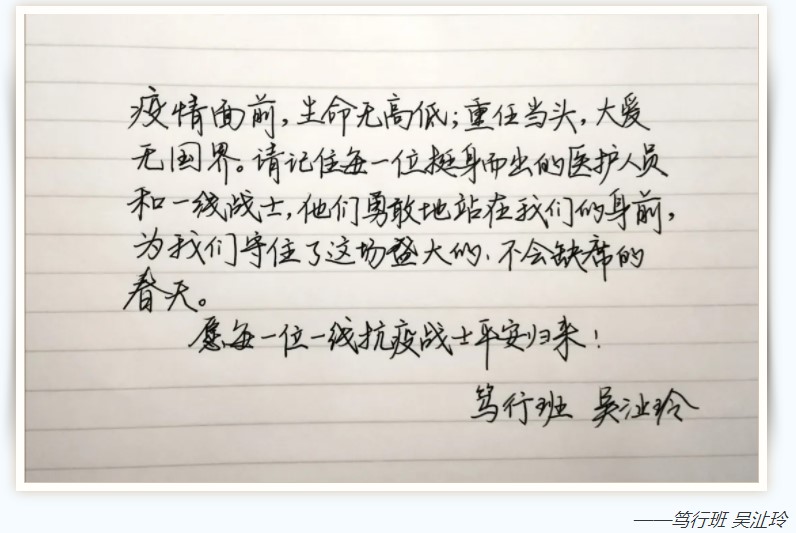 疫情面前,生命无高低;重任当头,大爱
无国界。请记住每一位挺身而出的医护人员
和一线战士,他们勇敢地站在我们的身前,
为我们守住了这场盛大的、不会缺席的
春天。
愿每一位一线抗疫战士平安归来!
笃行班 吴沚玲
——笃行班 吴沚玲